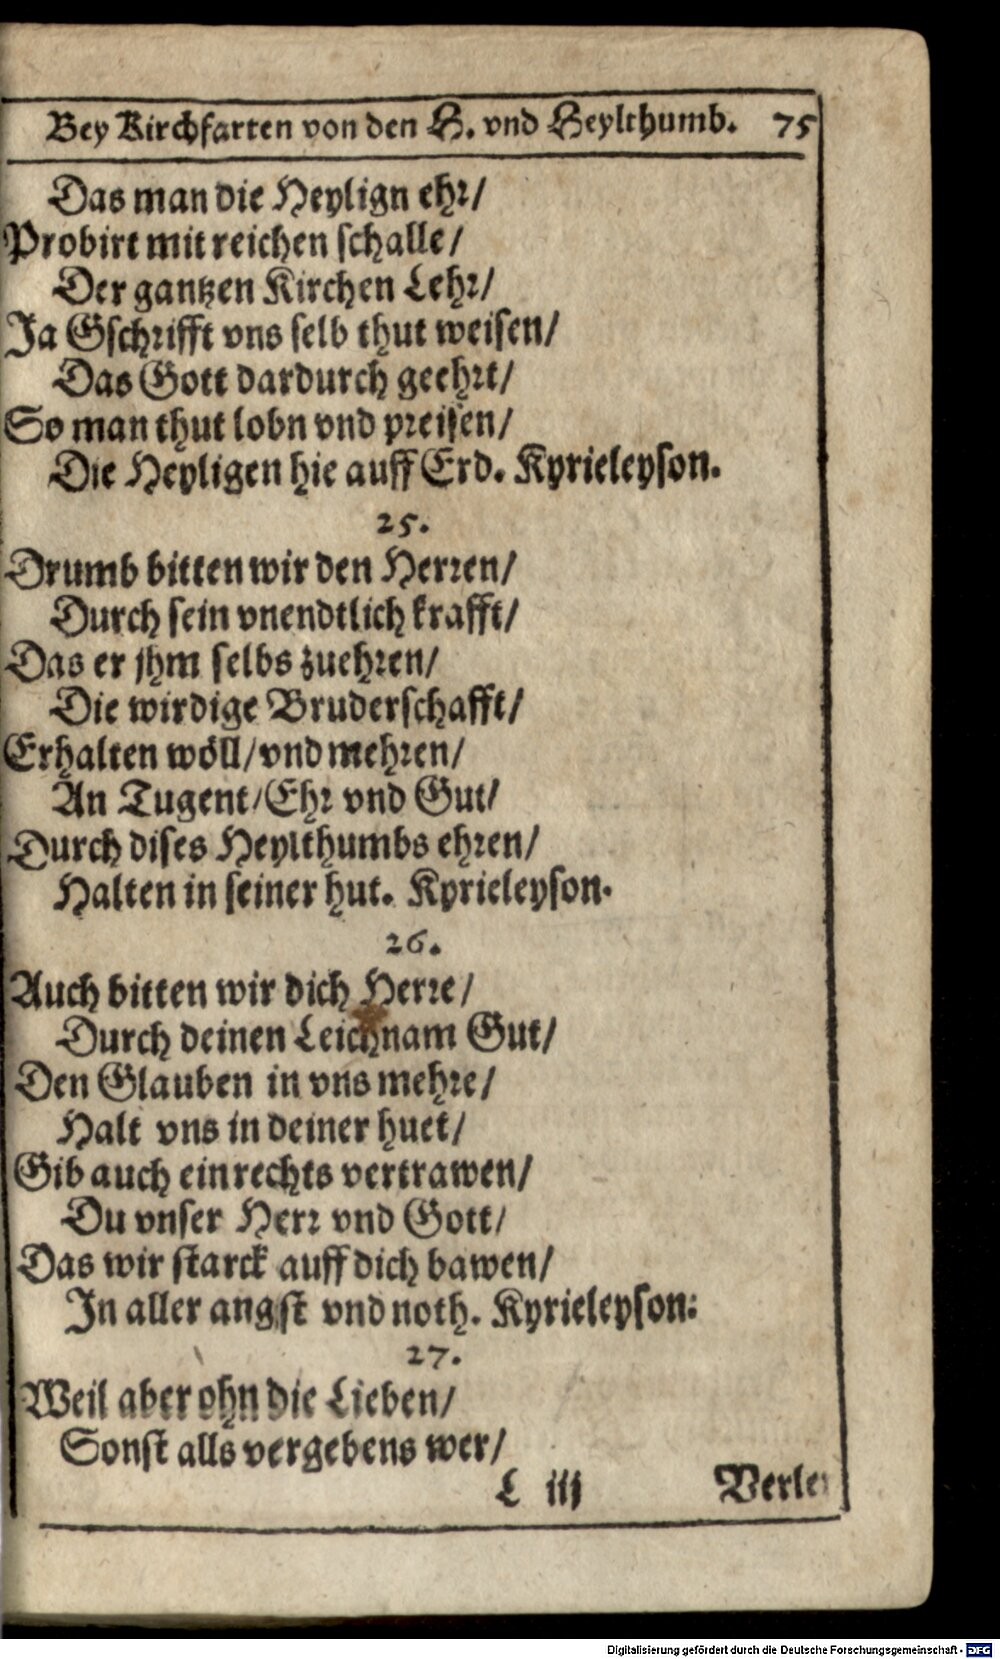 Bey Kirchfarten von den H. vnd Heylthumb. 75
Das man die Heylign ehr/
Probirt mit reichen schalle/
Der gantzen Kirchen Lehr/
Ja Gschrifft vns selb thut weisen/
Das Gott dardurch geehrt/
So man thut lobn vnd preisen/
Die Heyligen hie auff Erd. Kyrieleyson.
25.
Drumb bitten wir den Herren/
Durch sein vnendtlich krafft/
Das er jhm selbs zuehren/
Die wirdige Bruderschafft/
Erhalten wöll/vnd mehren/
An Tugent/Ehr vnd Gut/
Durch dises Heylthumbs ehren/
Halten in seiner hut. Kyrieleyson.
26.
Auch bitten wir dich Herre/
Durch deinen Leichnam Gut/
Den Glauben in vns mehre/
Halt vns in deiner huet/
Gib auch ein rechts vertrawen/
Du vnser Herr vnd Gott/
Das wir starck auff dich bawen/
In aller angst vnd noth. Kyrieleyson:
27.
Weil aber ohn die Lieben/
Sonst alls vergebens wer/
L iij Verle
Digitalisierung gefördert durch die Deutsche Forschungsgemeinschaft - DFG